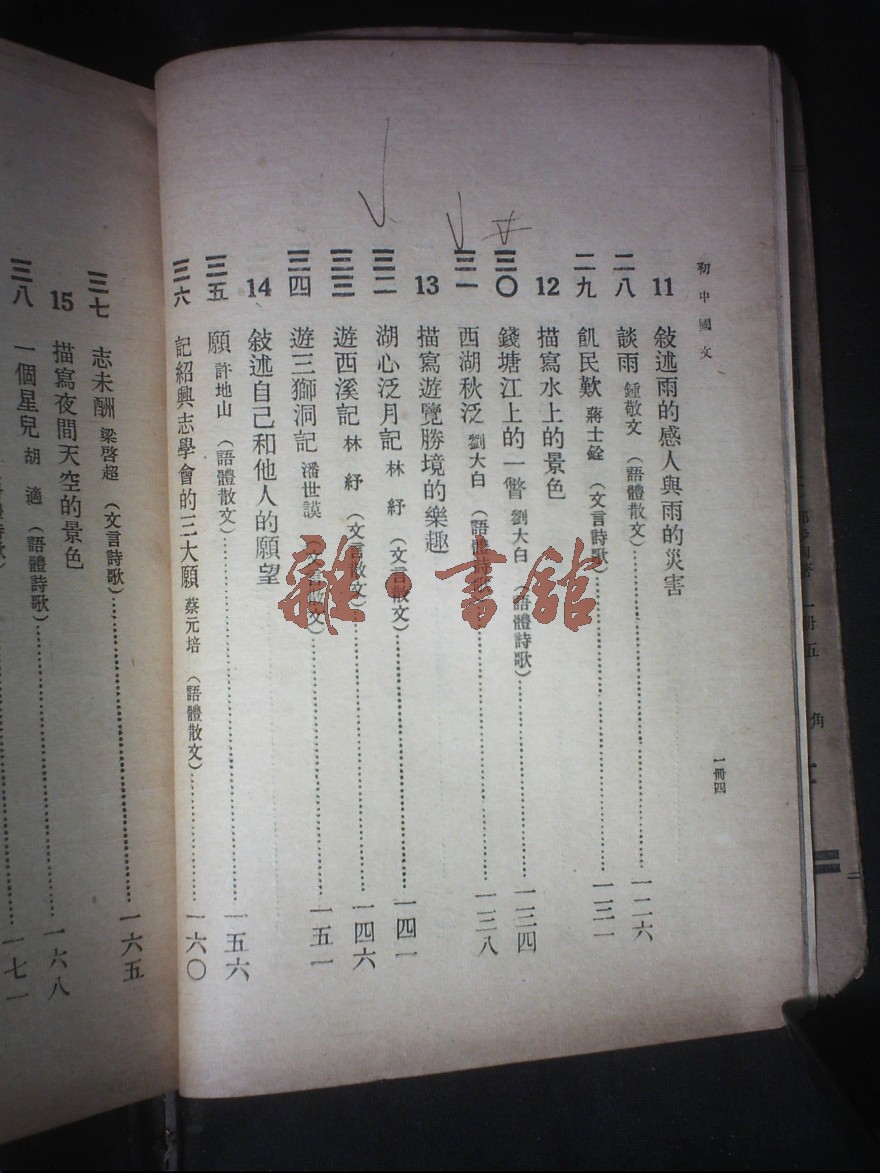 初中國文
一冊四
11 敍述雨的感人與雨的災害
二八 談雨 鍾敬文 (語體散文)…………一二六
二九 飢民歎 蔣士銓 (文言詩歌)…………一三一
12 描寫水上的景色
三〇 錢塘江上的一瞥 劉大白 (語體詩歌)…………一三四
三一 西湖秋泛 劉大白 (語體詩歌)…………一三八
13 描寫遊覽勝境的樂趣
三二 湖心泛月記 林紓 (文言散文)…………一四一
三三 遊西溪記 林紓 (文言散文)…………一四六
三四 遊三獅洞記 潘世謨 (文言散文)…………一五一
14 敍述自己和他人的願望
三五 願 許地山 (語體散文)…………一五六
三六 記紹興志學會的三大願 蔡元培 (語體散文)…………一六〇
三七 志未酬 梁啓超 (文言詩歌)…………一六五
15 描寫夜間天空的景色
三八 一個星兒 胡適 (語體詩歌)…………一六八
一七一
雜·書館
一冊五
角